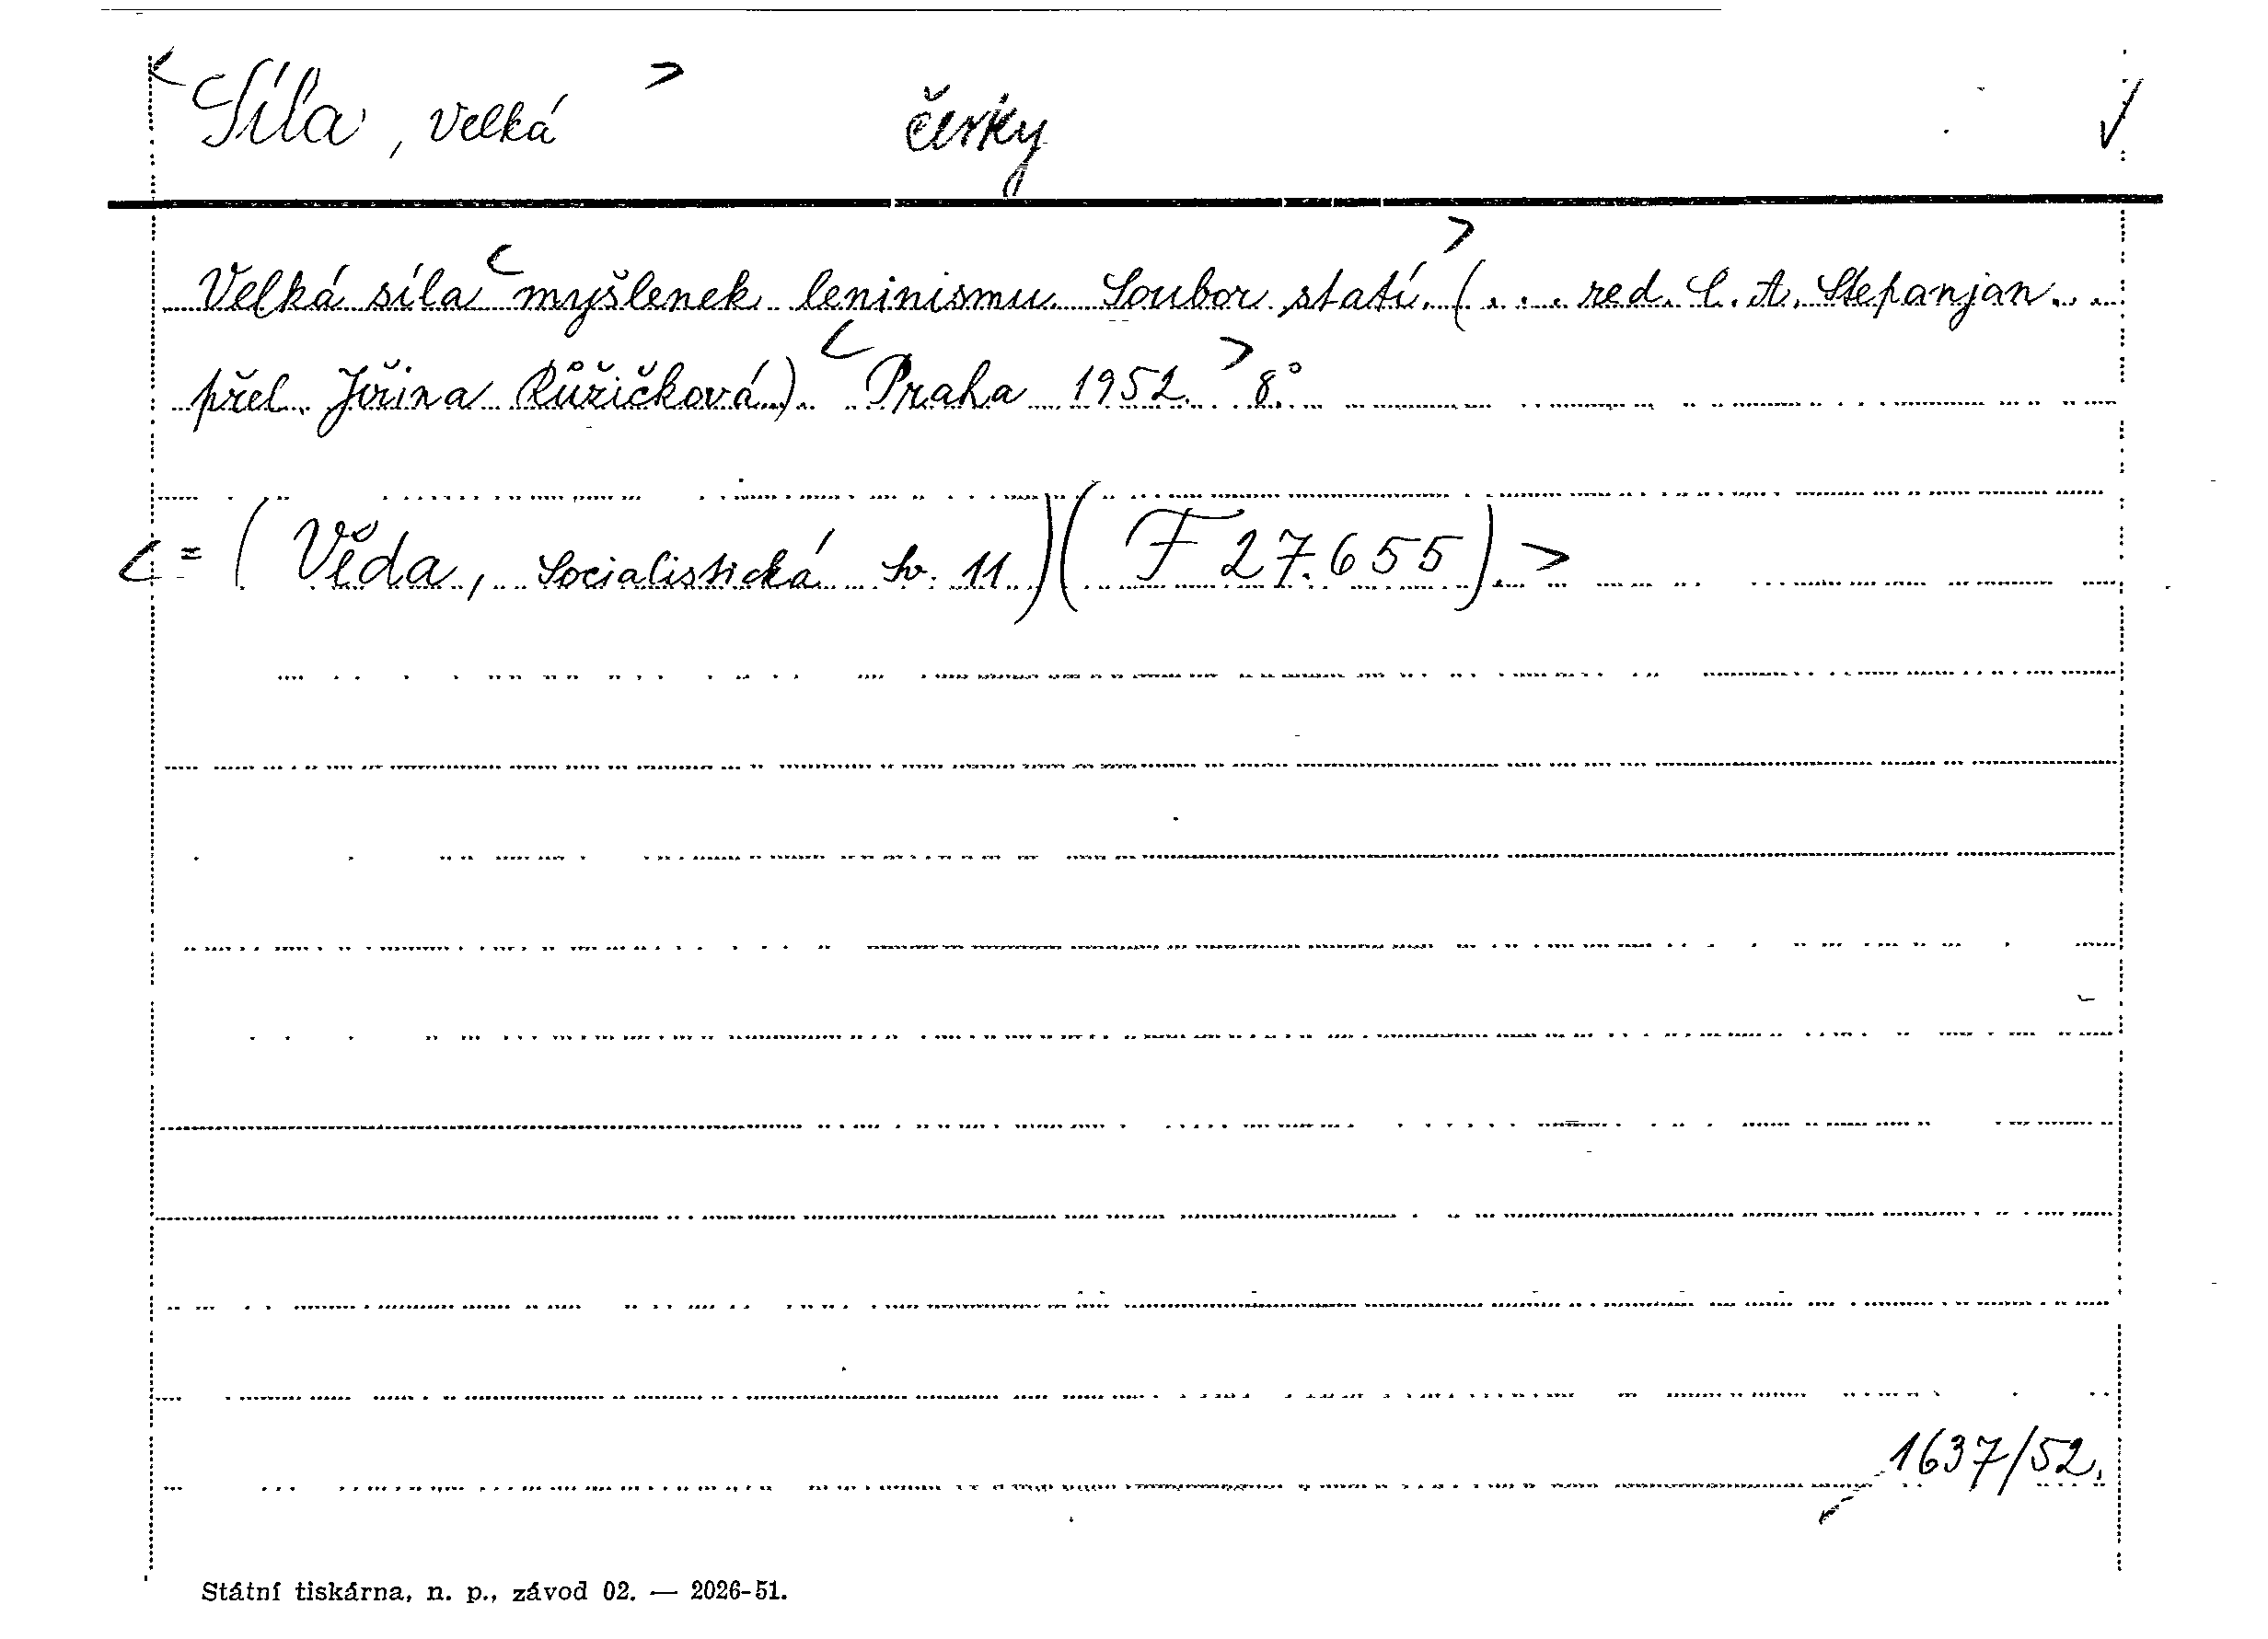 < Síla, velká > česky √
Velká síla < myšlenek leninismu. Soubor statí. > (... red. C. A. Stepanjan...
přel. Jiřina Růžičková). < Praha 1952. > 8°.
< = (Věda, Socialistická Sv. 11.) (F 27.655). >
1637/52.
Státní tiskárna, n. p., závod 02. — 2026-51.